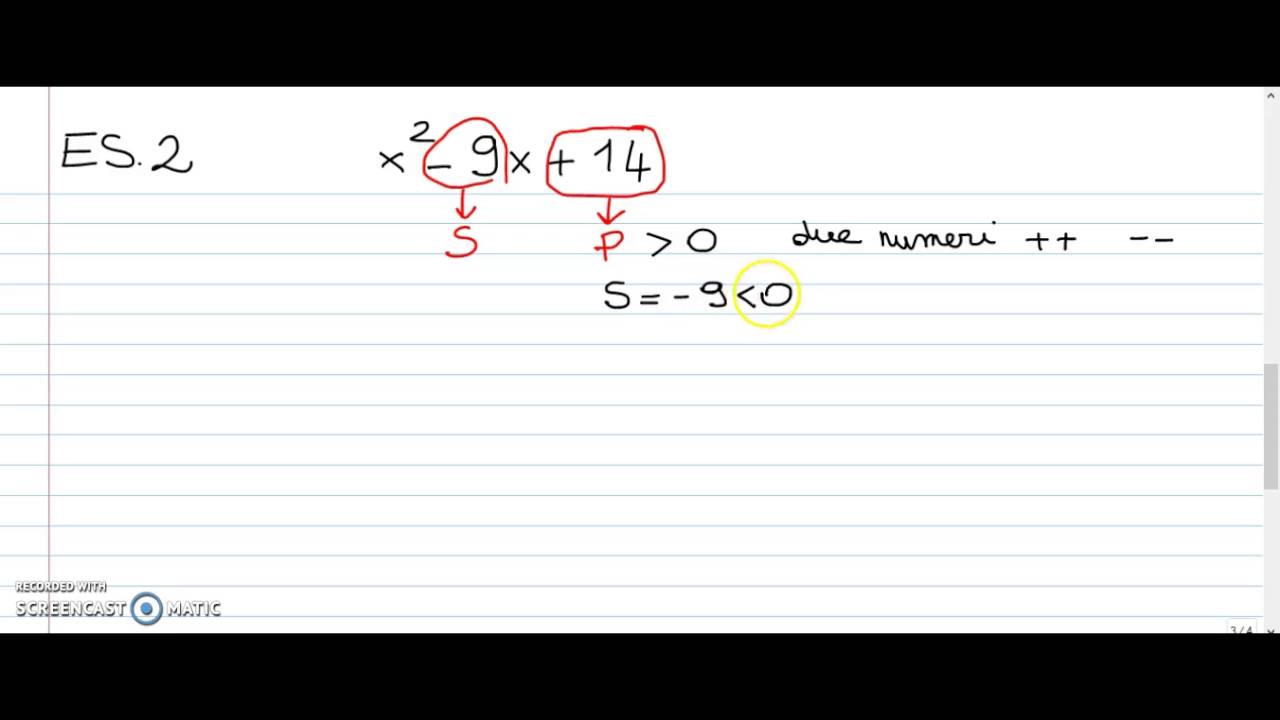 ES.2 x² - 9x + 14
S P > 0 due numeri ++ --
S = - 9 < 0
RECORDED WITH
SCREENCAST MATIC
3/4